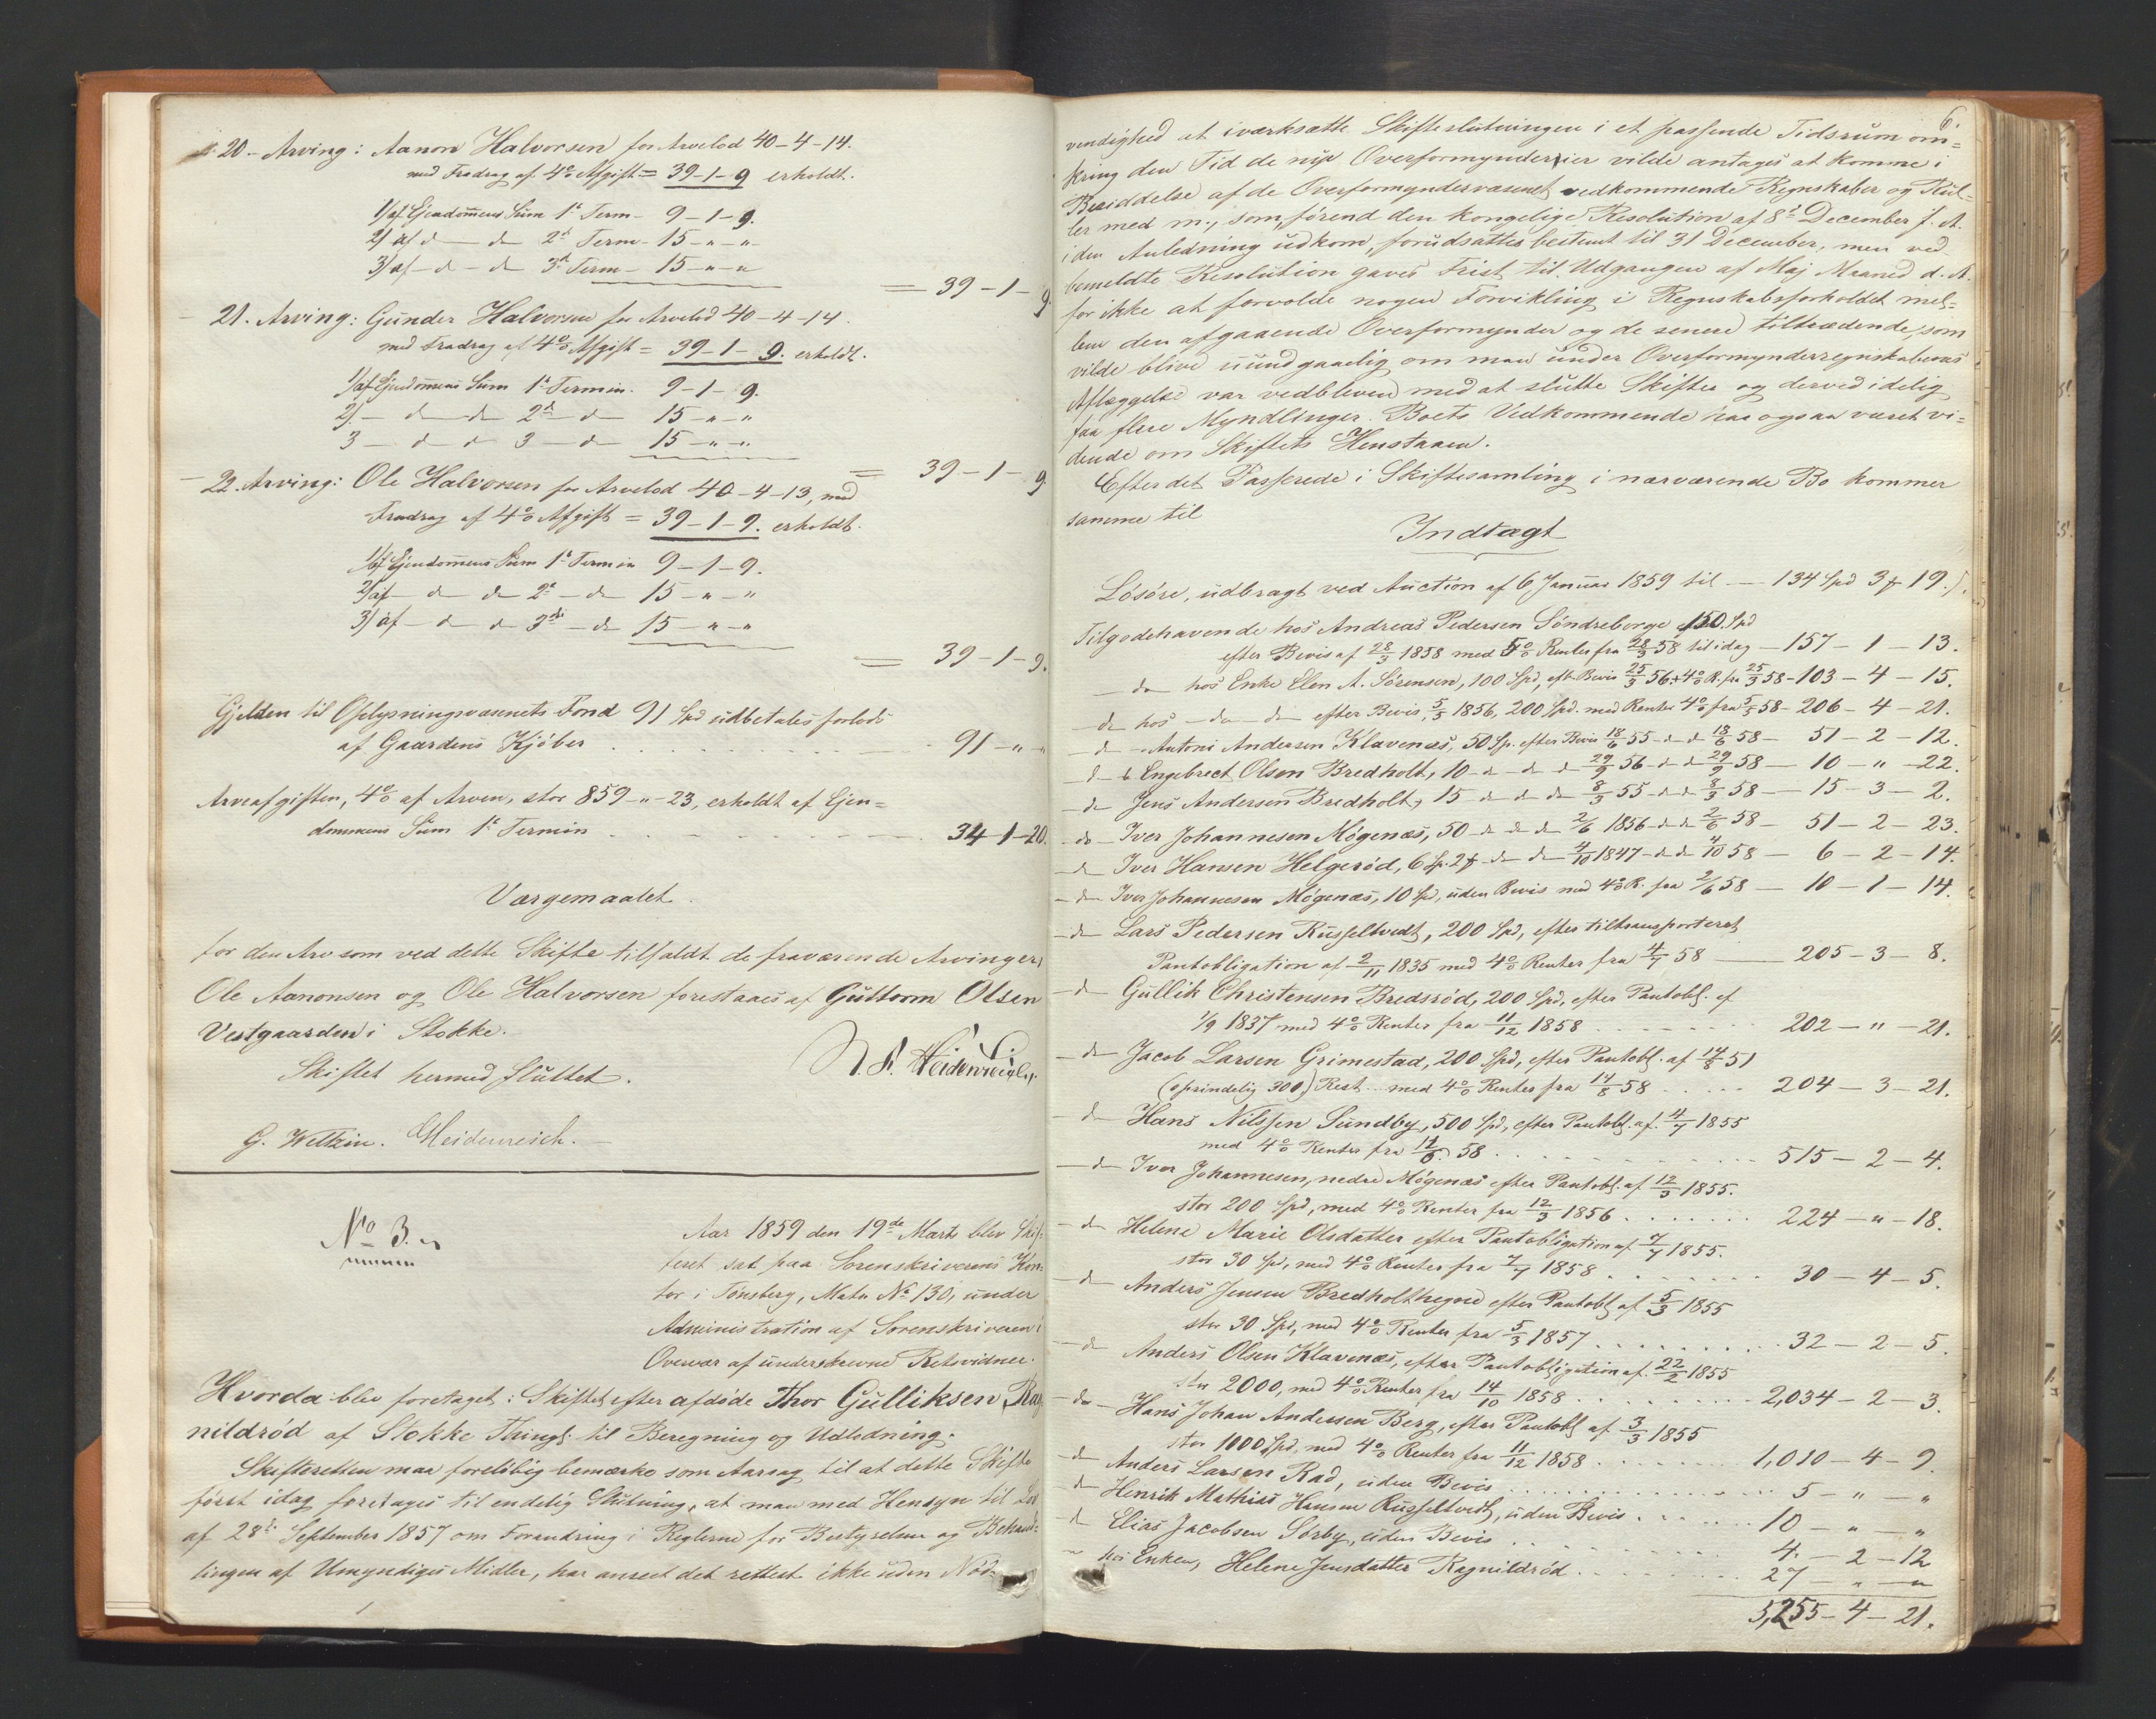 20 - Arving: Aanon Halvorsen for Arvelod 40-4-14.
med Fradrag af 4% Afgift = 39-1-9 erholdt.
1/ af Ejendommens Sum 1e Term - 9-1-9.
2/ af d - d 2d Term - 15 - " - "
3/ af - d - d 3d Term - 15 - " - "
= 39-1-9.
21. Arving: Gunder Halvorsen for Arvelod 40-4-14.
med Fradrag af 4% Afgift = 39-1-9. erholdt.
1/ af Ejendommens Sum 1e Termin. 9-1-9.
2/ - d d 2d - d 15 - " - "
3 - d d 3 - d 15 - " - "
= 39-1-9.
22. Arving: Ole Halvorsen for Arvelod 40-4-13, med
Fradrag af 4% Afgift = 39-1-9. erholdt.
1/ af Ejendommens Sum 1e Termin 9-1-9.
2/ af - d d 2d - d 15 - " - "
3/ af - d d 3die - d 15 - " - "
= 39-1-9.
Gjelden til Oplysningsvæsenets Fond 91 Spd udbetales forlods
af Gaardens Kjöber 91 - " - "
Arveafgiften, 4% af Arven, stor 859 - " - 23, erholdt af Ejen=
dommens Sum 1e Termin 34-1-20.
Værgemaalet
for den Arv som ved dette Skifte tilfaldt de fraværende Arvinger,
Ole Aanonsen og Ole Halvorsen forestaaes af Guttorm Olsen
Vestgaarden i Stokke.
Skiftet hermed sluttet.
Heidenreich
G. Weltzin. Heidenreich.
No 3.
Aar 1859 den 19de Marts blev Skif=
teret sat paa Sorenskriverens Kon=
tor i Tönsberg, Matr No 130, under
Administration af Sorenskriveren i
Overvær af underskrevne Retsvidner.
Hvorda blev foretaget: Skiftet efter afdöde Thor Gulliksen Rag
nildröd af Stokke Thingl. til Beregning og Udlodning.
Skifteretten maa forelöbig bemærke som Aarsag til at dette Skifte
först idag foretages til endelig Slutning, at man med Hensyn til Lov
af 28de September 1857 om Forandring i Reglerne for Bestyrelsen og Behand=
lingen af Umyndiges Midler, har anseet det rettest ikke uden Nöd=
6.
vendighed at iværksætte Skifteslutningen i et passende Tidsrum om=
kring den Tid de nye Overformynderier vilde antages at komme i
Besiddelse af de Overformyndervæsenet vedkommende Regnskaber og Mid=
ler med m., som, förend den kongelige Resolution af 8de December f. A.
i den Anledning udkom, forudsattes bestemt til 31 December, men ved
bemeldte Resolution gaves Frist til Udgangen af Maj Maaned d. A.
for ikke at forvolde nogen Forvikling i Regnskabsforholdet mel=
lem den afgaaende Overformynder og de senere tiltrædende, som
vilde blive uundgaaelig om man under Overformynderregnskabernes
Aflæggelse var vedbleven med at slutte Skifter og derved idelig
faa flere Myndlinger. Boets Vedkommende har ogsaa været vi=
dende om Skiftets Henstaaen.
Efter det Passerede i Skiftesamling i nærværende Bo kommer
samme til
Indtægt
Lösöre, udbragt ved Auction af 6 Januar 1859 til - 134 Spd 3 19
Tilgodehavende hos Andreas Pedersen Söndreborge 150 Spd
efter Bevis af 28/3 1858 med 5% Renter fra 28/3 58 til idag - 157 - 1 - 13.
- do hos Enke Elen A. Sörensen, 100 Spd, eft Bevis 25/3 56 + 4% R. fra 25/3 58 - 103 - 4 - 15.
- do hos - do - do efter Bevis 5/3 1856, 200 Spd. med Renter 4% fra 5/3 58 - 206 - 4 - 21.
- d - Antoni Andersen Klavenæs, 50 Sp. efter Bevis 18/6 55 - d d 18/6 58 - 51 - 2 - 12.
- d Engebrect Olsen Bredholt, 10 - d - d d 29/9 56 - d d 29/9 58 - 10 - " - 22.
- do Jens Andersen Bredholt, 15 d d d 8/3 55 - d d 8/3 58 - 15 - 3 - 2.
- do - Iver Johannesen Mögenæs, 50 - d d d 2/6 1856 - d d 2/6 58 - 51 - 2 - 23.
- d - Iver Hansen Helgeröd, 6 Sp. 2 - d - d 4/10 1847 - d d 4/10 58 - 6 - 2 - 14.
- do - Iver Johannesen Mögenæs, 10 Spd, uden Bevis med 4% R. fra 2/6 58 - 10 - 1 - 14.
- do - Lars Pedersen Russeltvedt, 200 Spd, efter tiltransporteret
Pantobligation af 2/11 1835 med 4% Renter fra 4/7 58 - 205 - 3 - 8.
- do Gullik Christensen Bredsröd, 200 Spd, efter Pantobl. af
1/9 1837 med 4% Renter fra 11/12 1858 202 - " - 21.
- do Jacob Larsen Grimestad, 200 Spd, efter Pantobl. af 14/8 51
(oprindelig 300) Rest med 4% Renter fra 14/8 58 204 - 3 - 21.
- do Hans Nilssen Sundby, 500 Spd, efter Pantobl. af 4/7 1855
med 4% Renter fra 58 515 - 2 - 4.
- d - Iver Johannesen, nedre Mögenæs efter Pantobl. af 12/3 1855.
stor 200 Spd, med 4% Renter fra 12/3 1856 224 - " - 18.
- do Helene Marie Olsdatter efter Pantobligation af 7/7 1855.
stor 30 Spd, med 4% Renter fra 7/7 1858 30 - 4 - 5.
- do Anders Jensen Bredholt efter Pantobl. af 5/3 1855
stor 30 Spd, med 4% Renter fra 5/3 1857 32 - 2 - 5.
- do Anders Olsen Klavenæs, efter Pantobligation af 22/2 1855
stor 2000, med 4% Renter fra 14/10 1858 2,034 - 2 - 3.
- do - Hans Johan Andersen Berg, efter Pantobl. af 3/3 1855
stor 1000 Spd, med 4% Renter fra 11/12 1858 1,010 - 4 - 9.
- d Anders Larsen Rad, uden Bevis 5 - " - "
- do Henrik Mathias Hansen Russeltvedt, uden Bevis 10 - " - "
- d Elias Jacobsen Sörby, uden Bevis 4 - 2 - 12
- hos Enken, Helene Jensdatter Ragnildröd 27 - " - "
5,255 - 4 - 21.